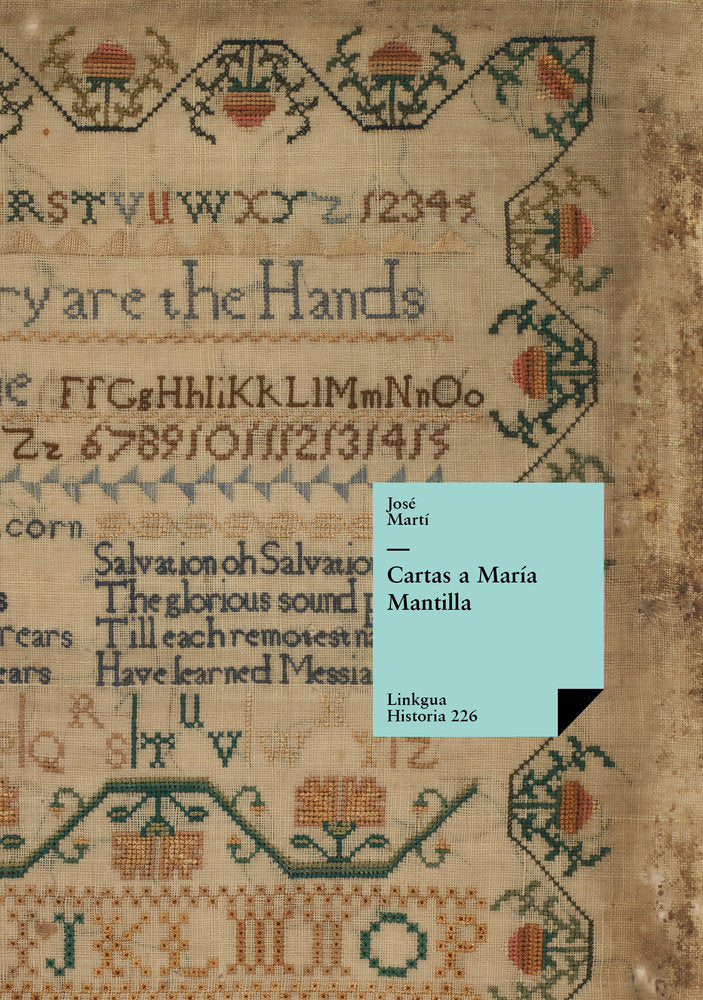 RSTVUWXYZ 12345
ry are the Hands
e FfGgHhIiKkLlMmNnOo
Zz 6789101112131415
corn
Salvation oh Salvatio
s The glorious sound
rears Till each remotest na
ears Have learned Messia
José
Martí
—
Cartas a María
Mantilla
Linkgua
Historia 226
R U
Q S T V W Z
J K L M N O P